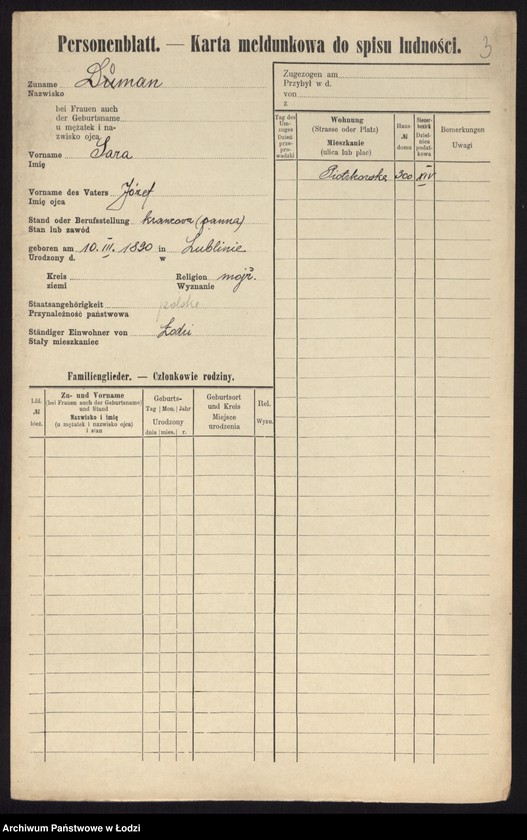 Personenblatt. — Karta meldunkowa do spisu ludności.
3
Zuname Duman
Nazwisko
bei Frauen auch
der Geburtsname
u mężatek i na-
zwisko ojca
Vorname Sara
Imię
Vorname des Vaters Józef
Imię ojca
Stand oder Berufsstellung krawcowa (panna)
Stan lub zawód
geboren am 10. III. 1890 in Lublinie
Urodzony d. w
Kreis Religion mojż.
ziemi Wyznanie
Staatsangehörigkeit polska
Przynależność państwowa
Ständiger Einwohner von Łodzi
Stały mieszkaniec
Familienglieder. — Członkowie rodziny.
Lfd.
№
bież.
Zu- und Vorname
(bei Frauen auch der Geburtsname)
und Stand
Nazwisko i imię
(u mężatek i nazwisko ojca)
i stan
Geburts-
Tag | Mon. | Jahr
Urodzony
dnia | mies. | r.
Geburtsort
und Kreis
Miejsce
urodzenia
Rel.
Wyzn.
Zugezogen am
Przybył w d.
von
z
Tag des
Um-
zuges
Dzień
prze-
pro-
wadzki
Wohnung
(Strasse oder Platz)
Mieszkanie
(ulica lub plac)
Haus-
№
domu
Steuer-
bezirk
Dziel-
nica
podat-
kowa
Bemerkungen
Uwagi
Piotrkowska 300 XIV
Archiwum Państwowe w Łodzi